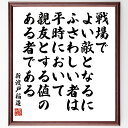 戦場で
よい敵となるに
ふさわしい者は
平時において
親友とする値の
ある者である
新渡戸稲造